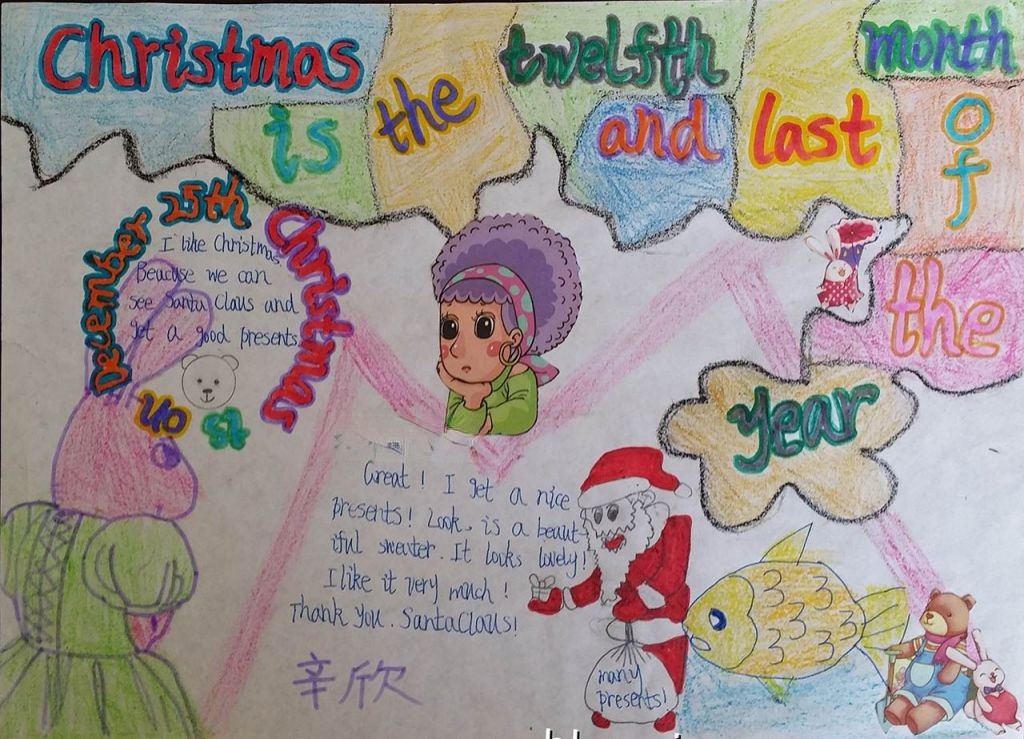 Christmas is the twelfth and last month of the year
December 25th Christmas
I like Christmas
Beacuse we can
see Santa Claus and
get a good presents
Great! I get a nice
presents! Look. is a beaut-
iful sweater. It looks lovely!
I like it very much!
Thank You. SantaClaus!
辛欣
many
presents!